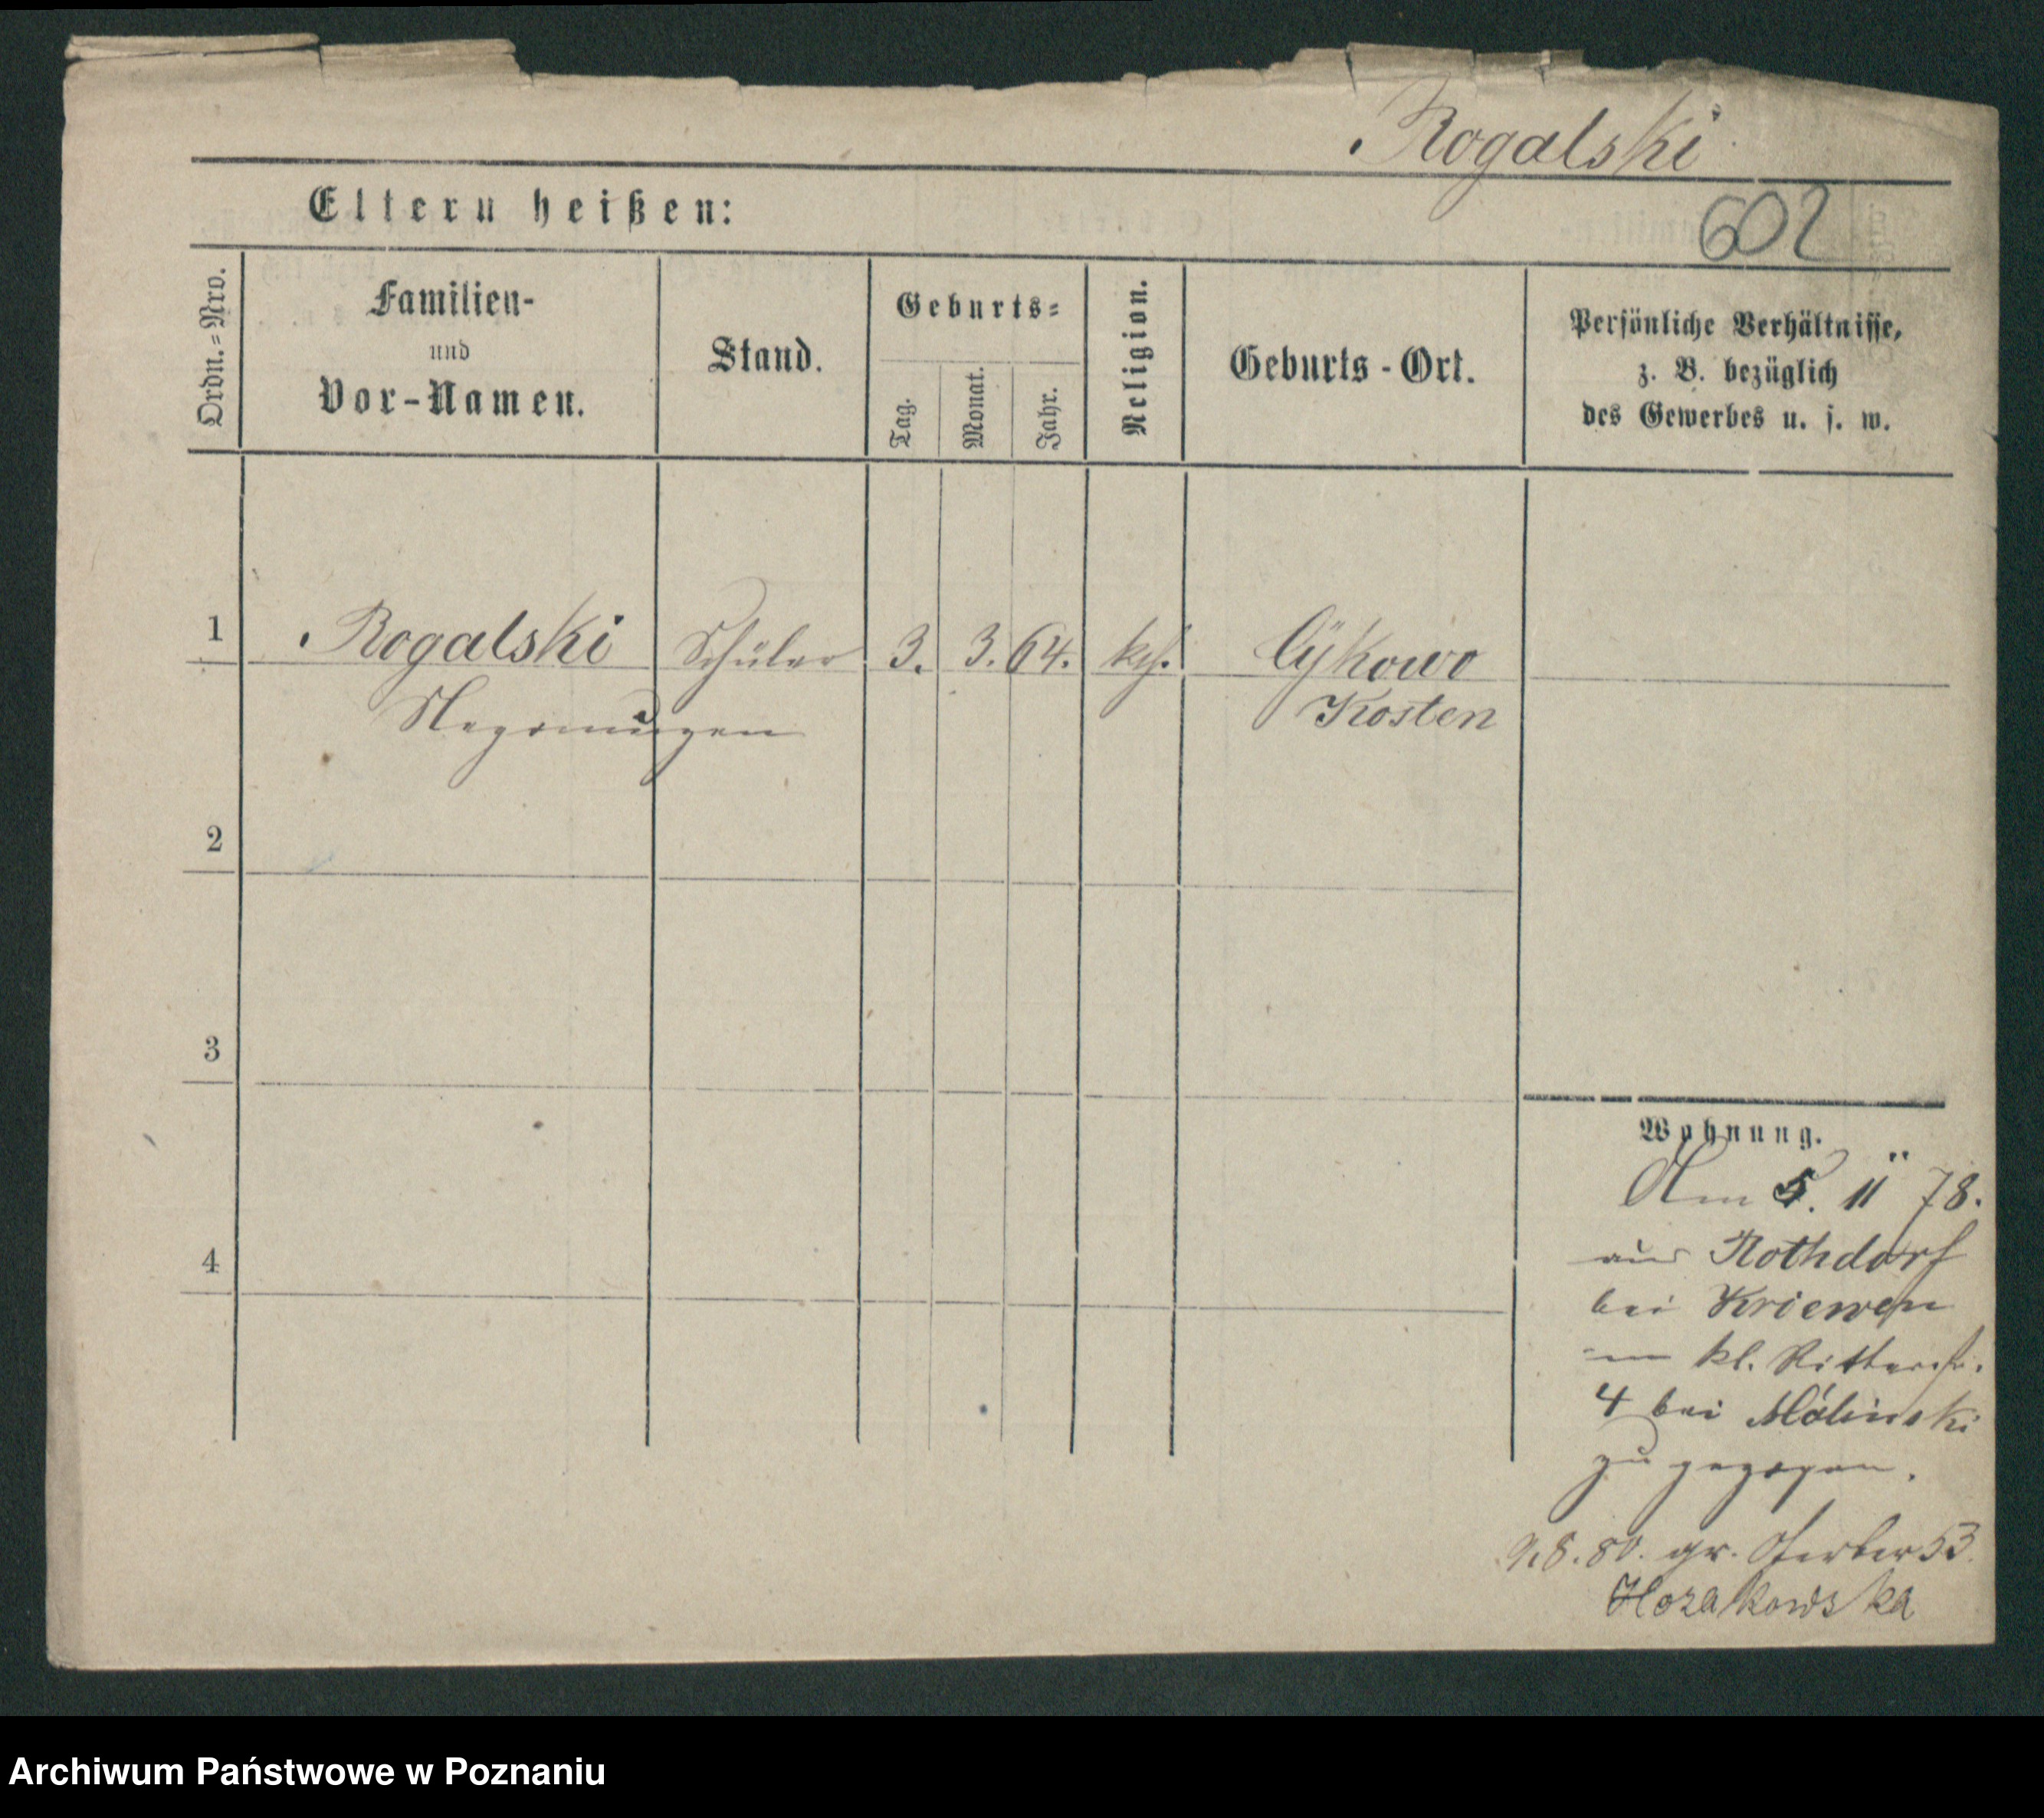 Rogalski
Eltern heißen:
602
Ordn.=Nro.
Familien-
und
Vor-Namen.
Stand.
Geburts=
Tag.
Monat.
Jahr.
Religion.
Geburts-Ort.
Persönliche Verhältnisse,
z. B. bezüglich
des Gewerbes u. s. w.
1 Rogalski Schüler 3. 3. 64. kth. Cÿkowo
Nepomuzen Kosten
2
3
4
Wohnung.
Am 5. 11 78.
aus Rothdorf
bei Kriewen
kl. Ritterstr.
4 bei Molinski
zugezogen.
8. 80. gr. Gerber 53
Archiwum Państwowe w Poznaniu